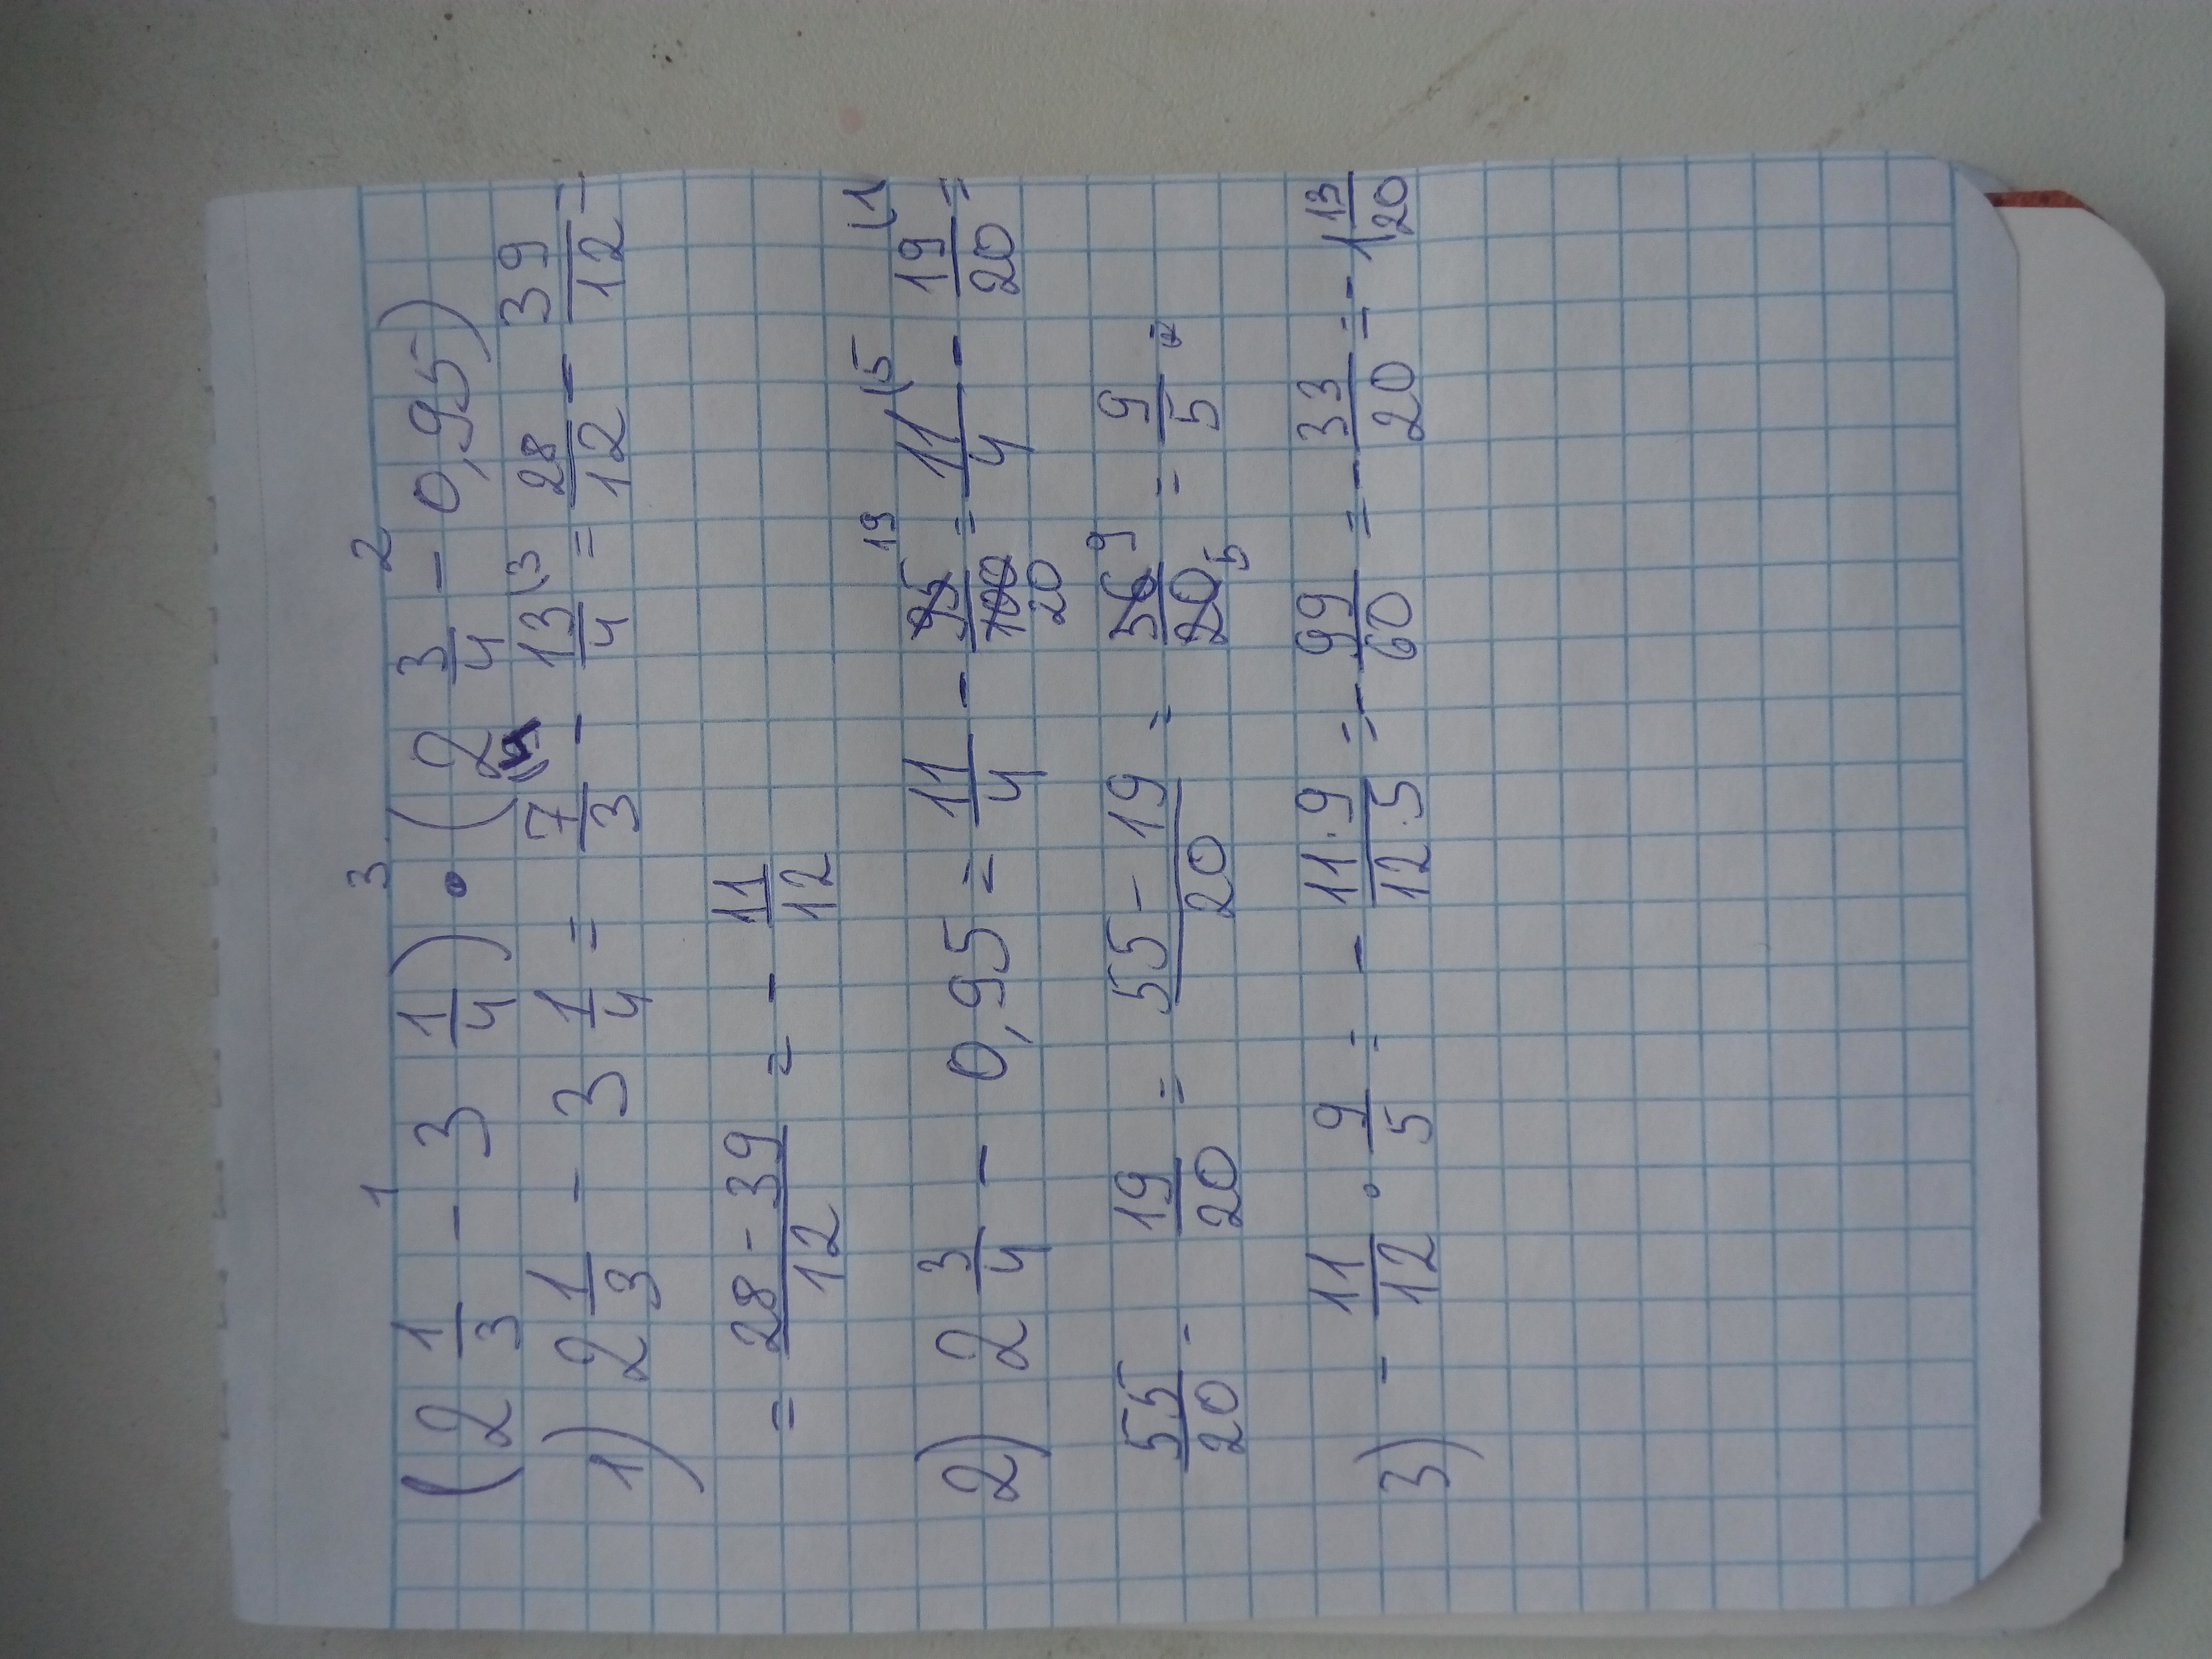 (2 1/3 -¹ 3 1/4) ·³ (2 3/4 -² 0,95)
1) 2 1/3 - 3 1/4 = 7/3 (4 - 13/4 (3 = 28/12 - 39/12 =
= 28 - 39/12 = - 11/12
2) 2 3/4 - 0,95 = 11/4 - 95/100 19/20 = 11/4 (5 - 19/20 (1 =
55/20 - 19/20 = 55 - 19/20 = 36/20 9/5 = 9/5
3) - 11/12 · 9/5 = - 11·9/12·5 = - 99/60 = - 33/20 = - 1 13/20